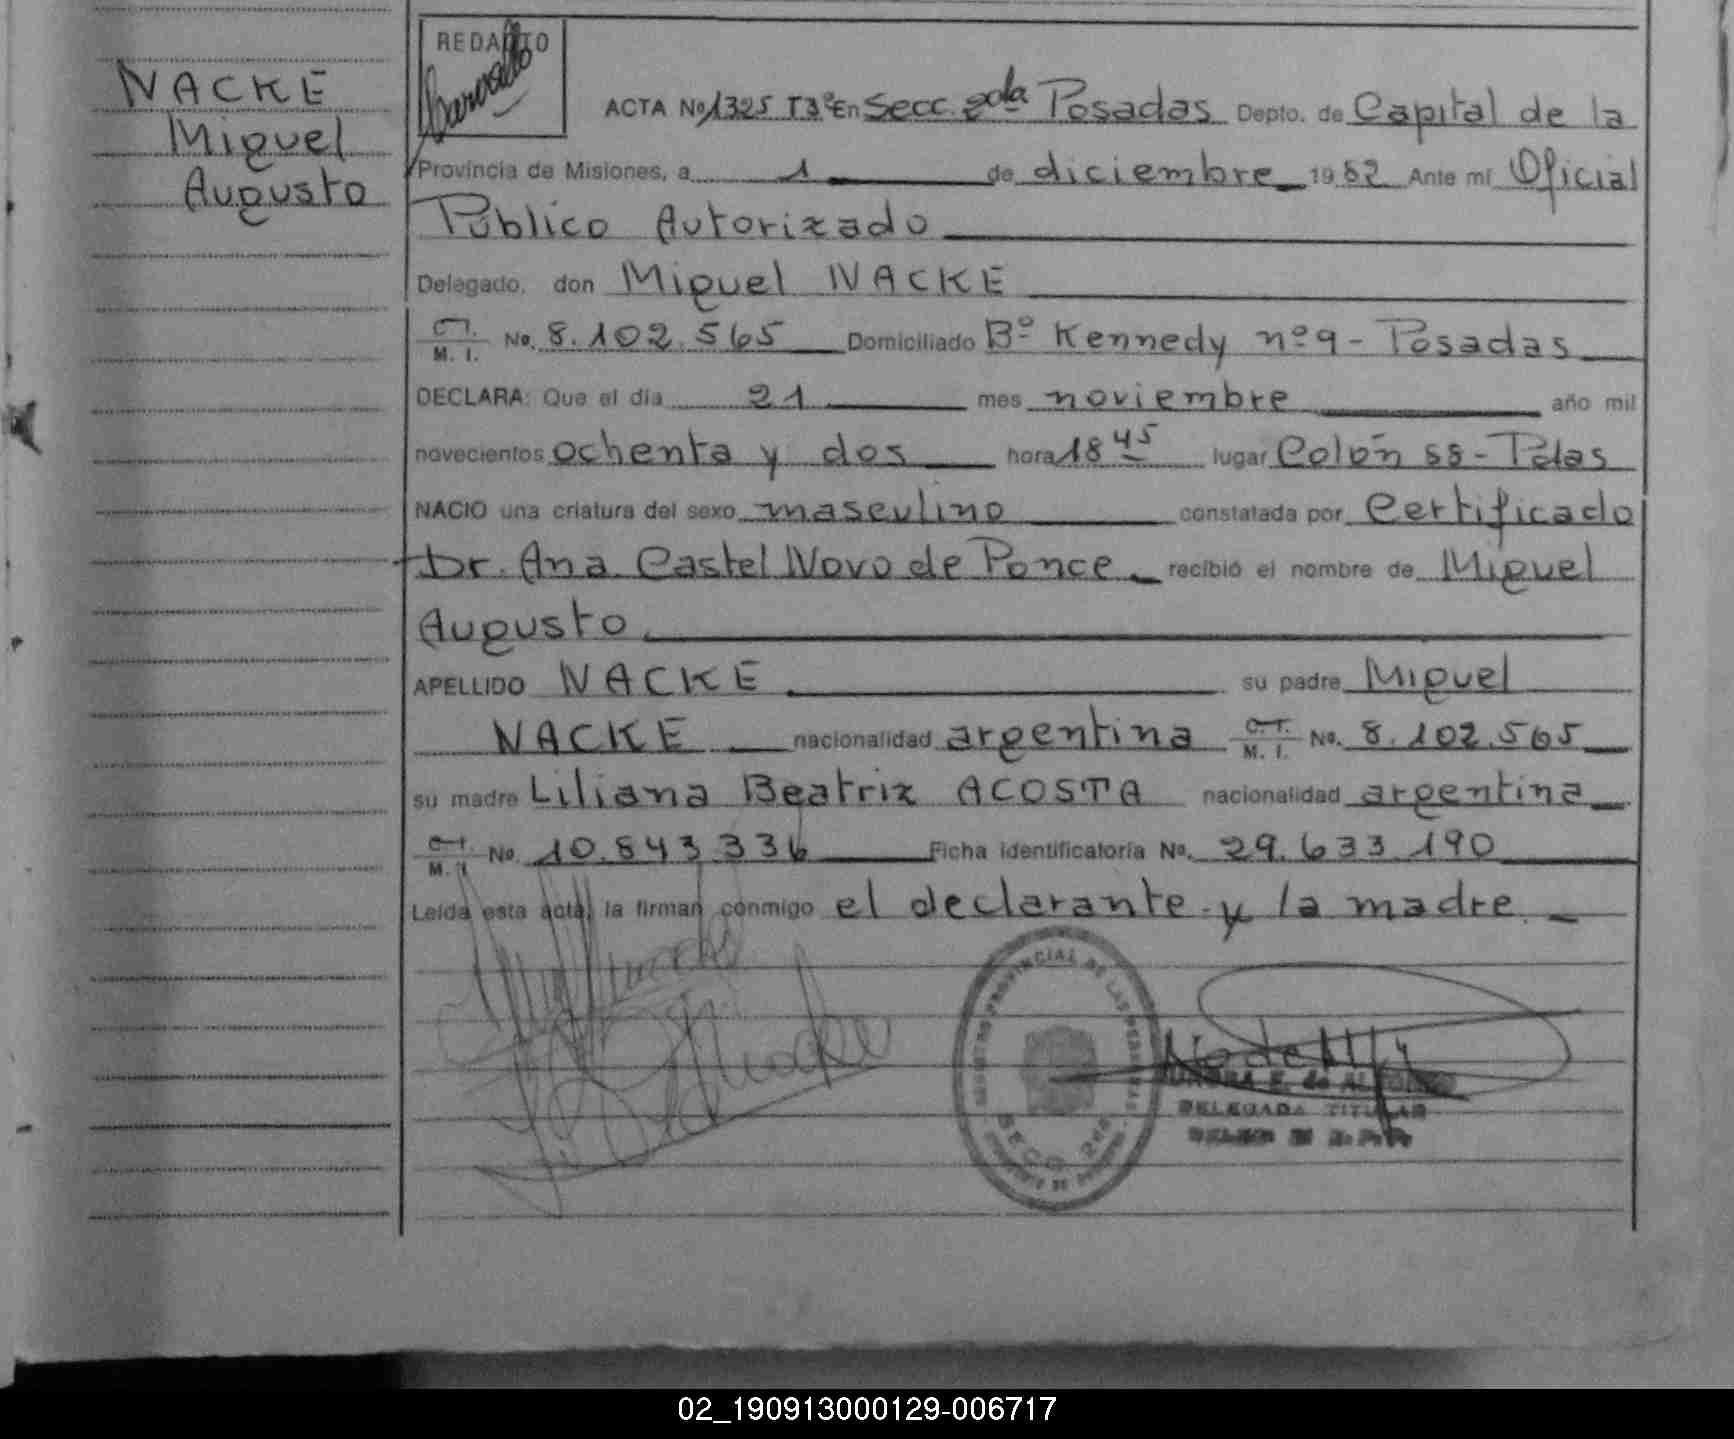 NACKE
Miguel
Augusto
REDACTO
ACTA No 1325 T3º En Secc. 2da Posadas Depto. de Capital de la
Provincia de Misiones, a 1 de diciembre 1982 Ante mí Oficial
Público Autorizado
Delegado, don Miguel NACKE
C.I. M. I. No. 8.102.565 Domiciliado Bº Kennedy nº 9 - Posadas
DECLARA: Que el día 21 mes noviembre año mil
novecientos ochenta y dos hora 18 45 lugar Colón 58 - Pdas
NACIO una criatura del sexo masculino constatada por Certificado
Dr. Ana Castel Novo de Ponce recibió el nombre de Miguel
Augusto
APELLIDO NACKE su padre Miguel
NACKE nacionalidad argentina C.I. M. I. No. 8.102.565
su madre Liliana Beatriz ACOSTA nacionalidad argentina
C.I. M. I. No. 10.843.336 Ficha identificatoria No. 29.633.190
Leída esta acta, la firman conmigo el declarante y la madre.
REGISTRO PROVINCIAL DE LAS PERSONAS
SECC. 2da
DELEGADA TITULAR
02_190913000129-006717